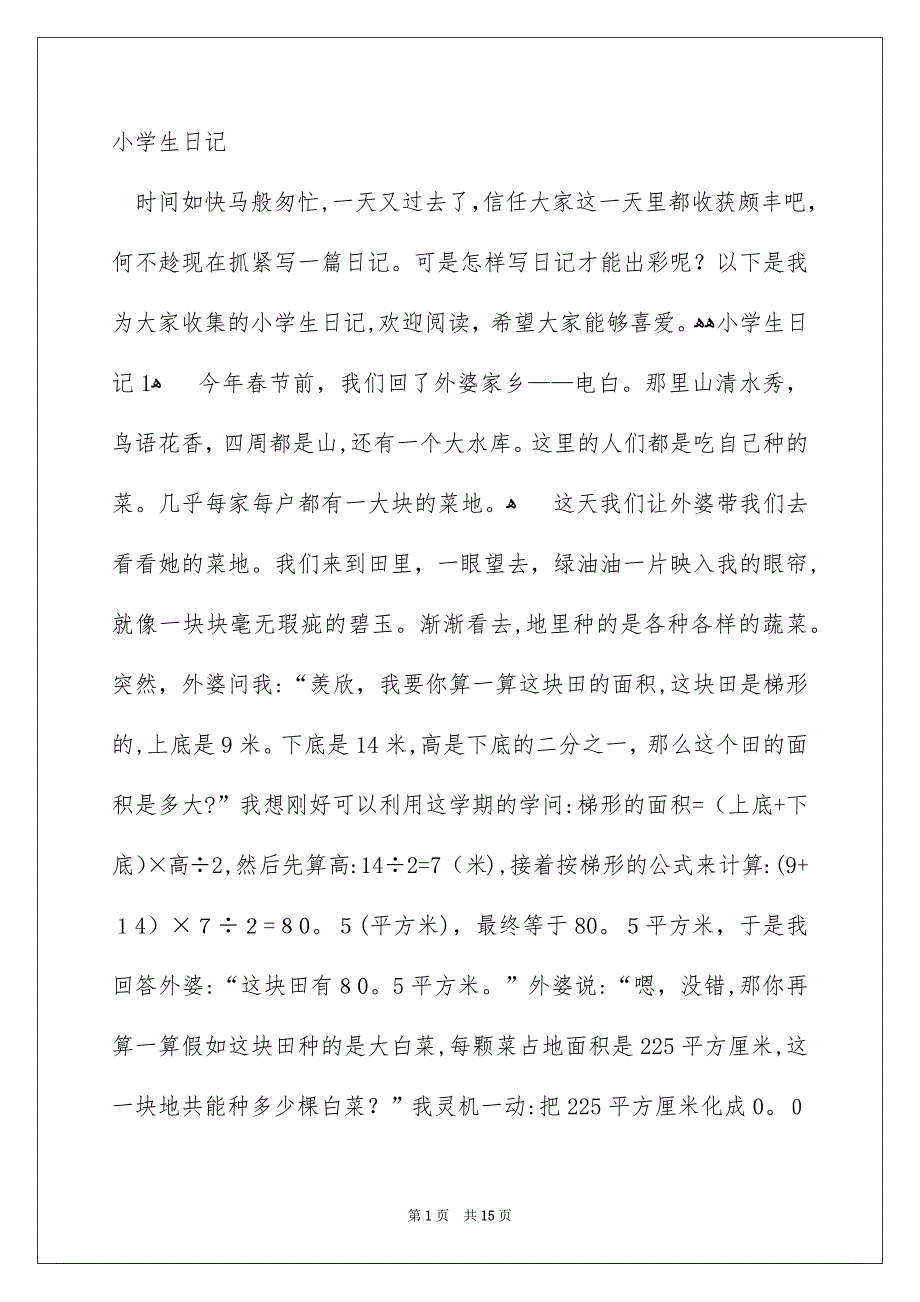 小学生日记
时间如快马般匆忙,一天又过去了，信任大家这一天里都收获颇丰吧，
何不趁现在抓紧写一篇日记。可是怎样写日记才能出彩呢？以下是我
为大家收集的小学生日记,欢迎阅读，希望大家能够喜爱。ﻫﻫ小学生日
记1ﻫ　今年春节前，我们回了外婆家乡——电白。那里山清水秀，
鸟语花香，四周都是山,还有一个大水库。这里的人们都是吃自己种的
菜。几乎每家每户都有一大块的菜地。ﻫ　这天我们让外婆带我们去
看看她的菜地。我们来到田里，一眼望去，绿油油一片映入我的眼帘,
就像一块块毫无瑕疵的碧玉。渐渐看去,地里种的是各种各样的蔬菜。
突然，外婆问我:“羡欣，我要你算一算这块田的面积,这块田是梯形
的,上底是9米。下底是14米,高是下底的二分之一，那么这个田的面
积是多大?”我想刚好可以利用这学期的学问:梯形的面积=（上底+下
底)×高÷2,然后先算高:14÷2=7（米),接着按梯形的公式来计算:(9+
14）×7÷2=80。5(平方米)，最终等于80。5平方米，于是我
回答外婆:“这块田有80。5平方米。”外婆说:“嗯，没错,那你再
算一算假如这块田种的是大白菜,每颗菜占地面积是225平方厘米,这
一块地共能种多少棵白菜？”我灵机一动:把225平方厘米化成0。0
第1页 共15页